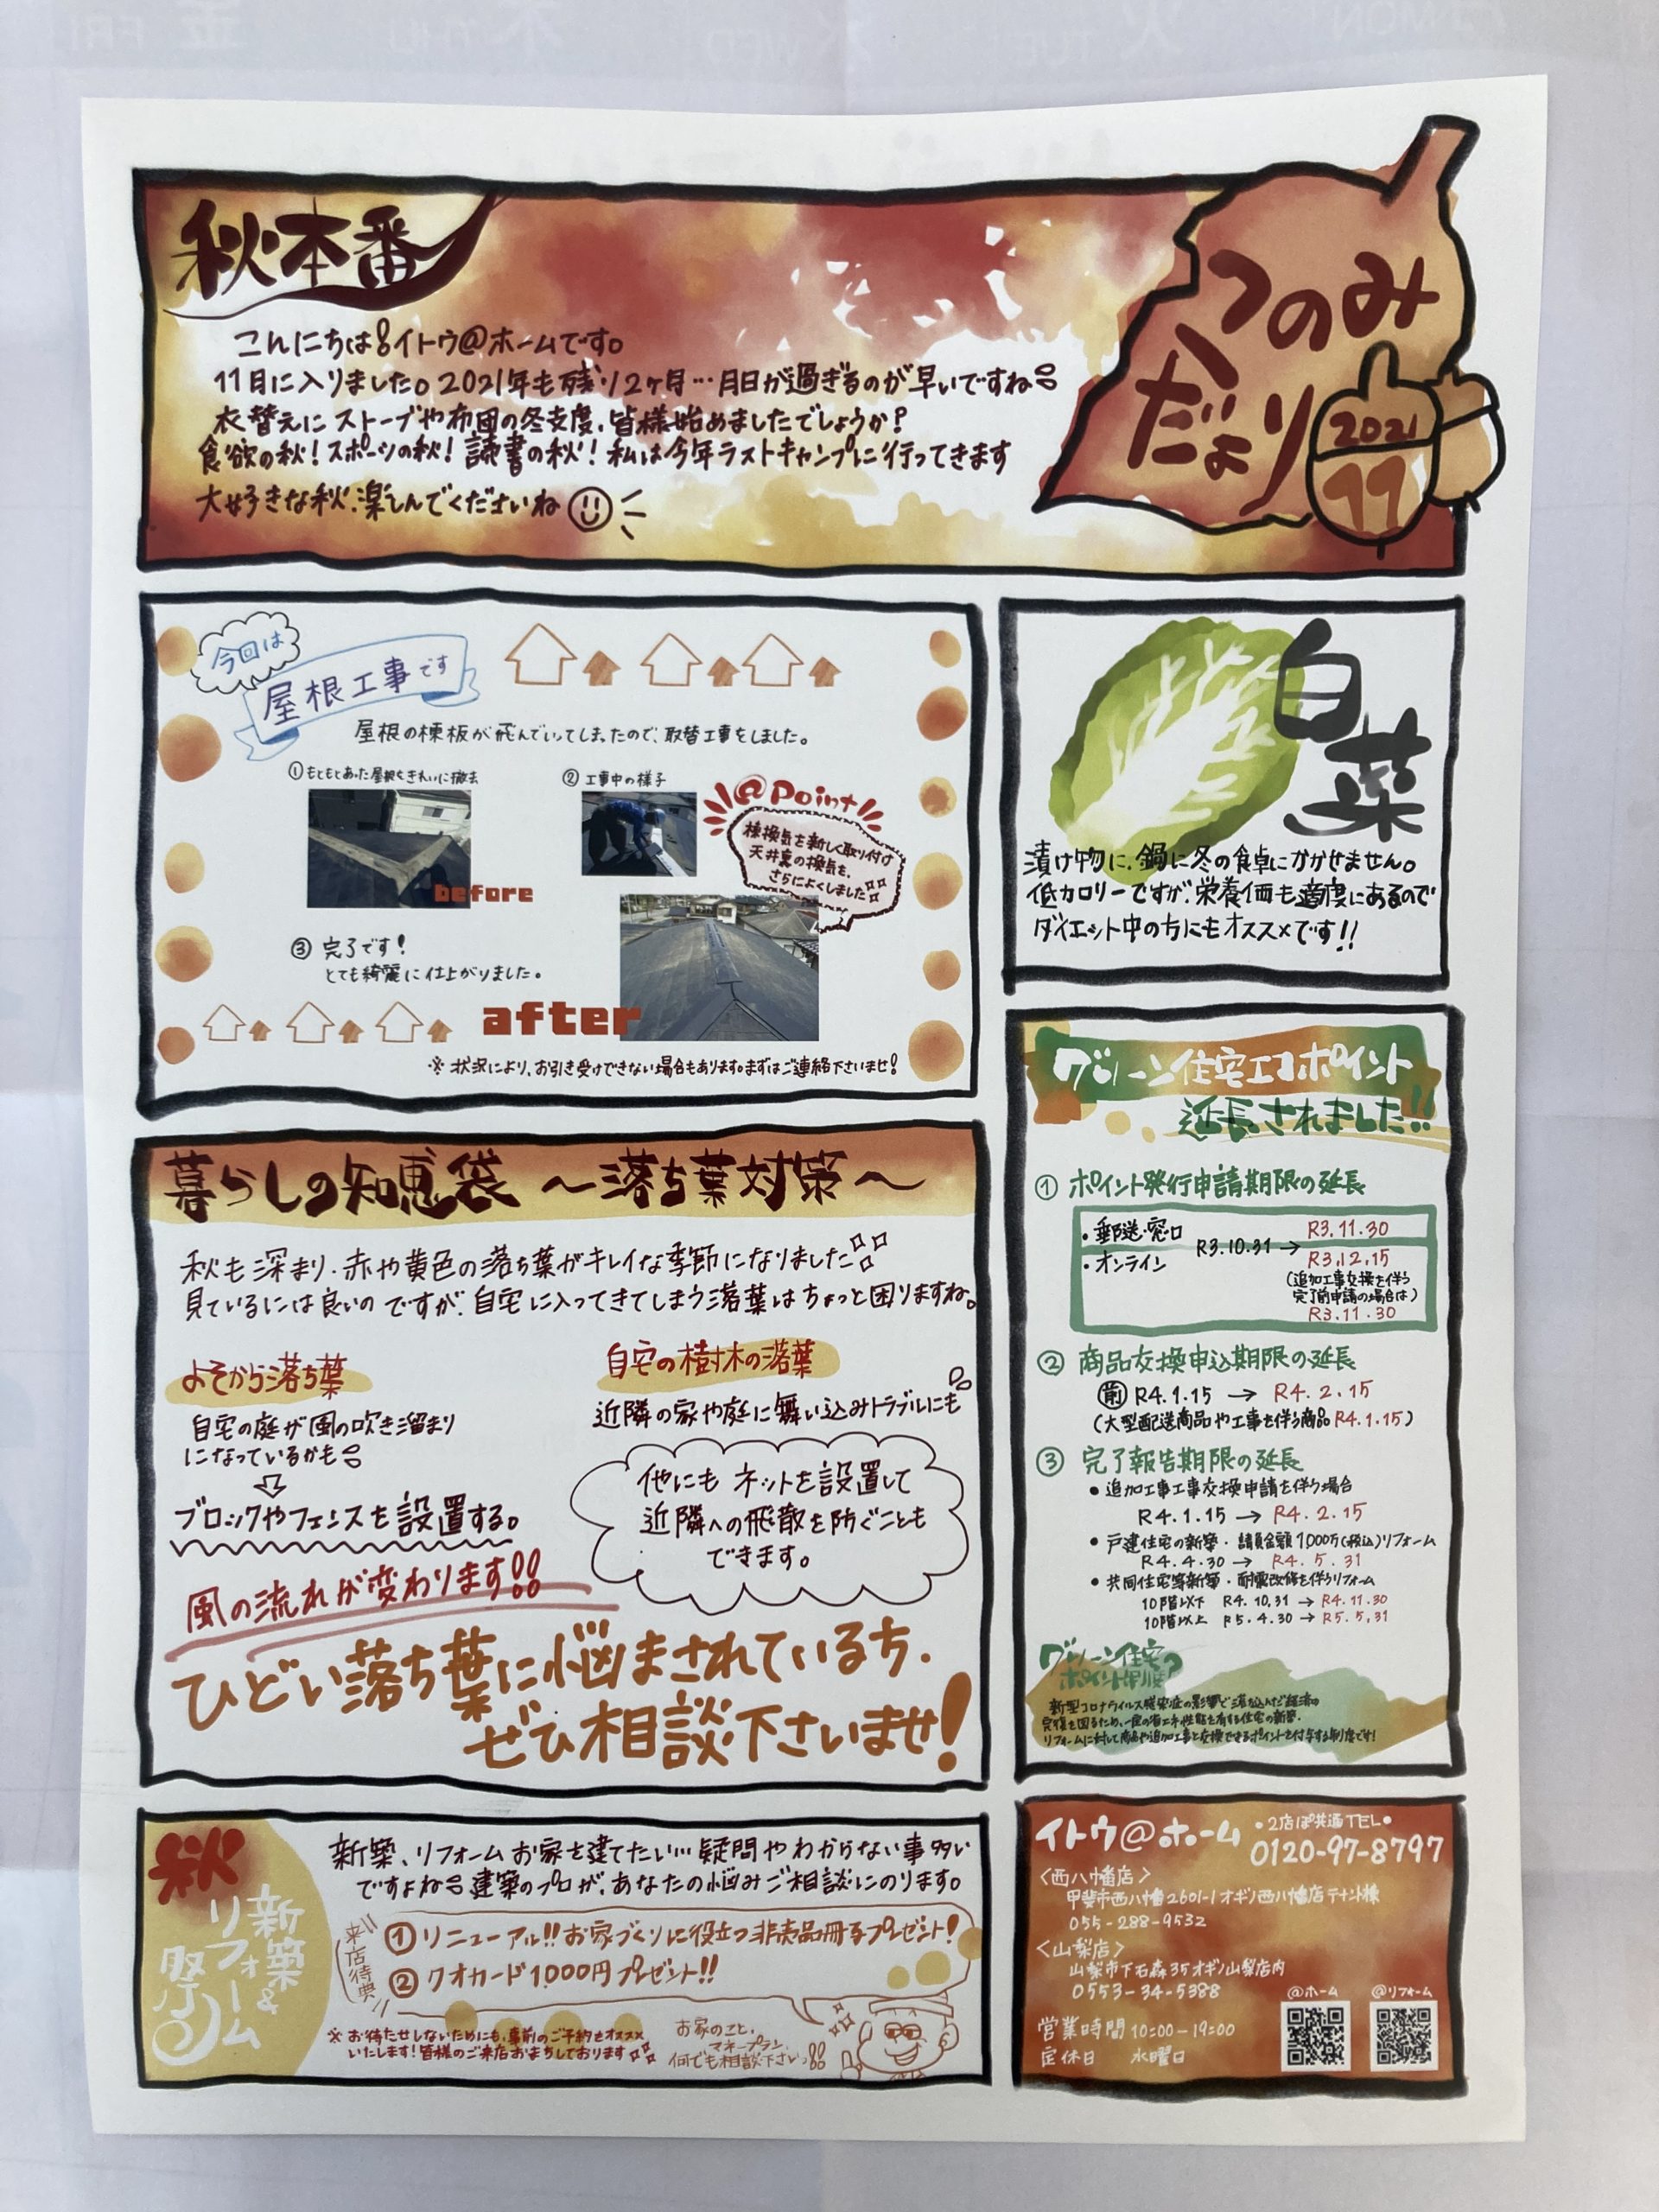 秋本番
こんにちは!イトウ@ホームです。
11月に入りました。2021年も残り2ヶ月…月日が過ぎるのが早いですね!
衣替えにストーブや布団の冬支度、皆様始めましたでしょうか?
食欲の秋!スポーツの秋!読書の秋!私は今年ラストキャンプに行ってきます
大好きな秋、楽しんでくださいね
つのみ
だより
2021
11
今回は
屋根工事です
屋根の棟板が飛んでいってしまったので、取替工事をしました。
①もともとあった屋根をきれいに撤去
before
②工事中の様子
@Point
棟換気を新しく取り付け
天井裏の換気を、
さらによくしました
③完了です!
とても綺麗に仕上がりました。
after
※状況により、お引き受けできない場合もあります。まずはご連絡下さいませ!
白菜
漬け物に、鍋に冬の食卓にかかせません。
低カロリーですが、栄養価も適度にあるので
ダイエット中の方にもオススメです!!
暮らしの知恵袋 ～落ち葉対策～
秋も深まり、赤や黄色の落ち葉がキレイな季節になりました
見ているには良いのですが、自宅に入ってきてしまう落葉はちょっと困りますね。
よそから落ち葉
自宅の庭が風の吹き溜まり
になっているかも!
ブロックやフェンスを設置する。
風の流れが変わります!!
自宅の樹木の落葉
近隣の家や庭に舞い込みトラブルにも
他にもネットを設置して
近隣への飛散を防ぐことも
できます。
ひどい落ち葉に悩まされている方、
ぜひ相談下さいませ!
グリーン住宅エコポイント
延長されました!!
①ポイント発行申請期限の延長
・郵送・窓口 R3.10.31 → R3.11.30
・オンライン R3.12.15
(追加工事交換を伴う
完了前申請の場合は)
R3.11.30
②商品交換申込期限の延長
前 R4.1.15 → R4.2.15
(大型配送商品や工事を伴う商品R4.1.15)
③完了報告期限の延長
・追加工事工事交換申請を伴う場合
R4.1.15 → R4.2.15
・戸建住宅の新築・請負金額1000万(税込)リフォーム
R4.4.30 → R4.5.31
・共同住宅等新築・耐震改修を伴うリフォーム
10階以下 R4.10.31 → R4.11.30
10階以上 R5.4.30 → R5.5.31
グリーン住宅
ポイント制度?
新型コロナウイルス感染症の影響で落ち込んだ経済の
回復を図るため、一定の省エネ性能を有する住宅の新築・
リフォームに対して商品や追加工事と交換できるポイントを付与する制度です!
秋
新築&
リフォーム
祭り
新築、リフォームお家を建てたい…疑問やわからない事多い
ですよね!建築のプロが、あなたの悩みご相談にのります。
来店特典
①リニューアル!!お家づくりに役立つ非売品冊子プレゼント!
②クオカード1000円プレゼント!!
※お待たせしないためにも、事前のご予約をオススメ
いたします!皆様のご来店おまちしております
お家のこと、
マネープラン、
何でも相談下さいっ!!
イトウ@ホーム
・2店ぽ共通TEL・
0120-97-8797
〈西八幡店〉
甲斐市西八幡2601-1オギノ西八幡店テナント棟
055-288-9532
〈山梨店〉
山梨市下石森35オギノ山梨店内
0553-34-5388
営業時間 10:00-19:00
定休日 水曜日
@ホーム
@リフォーム